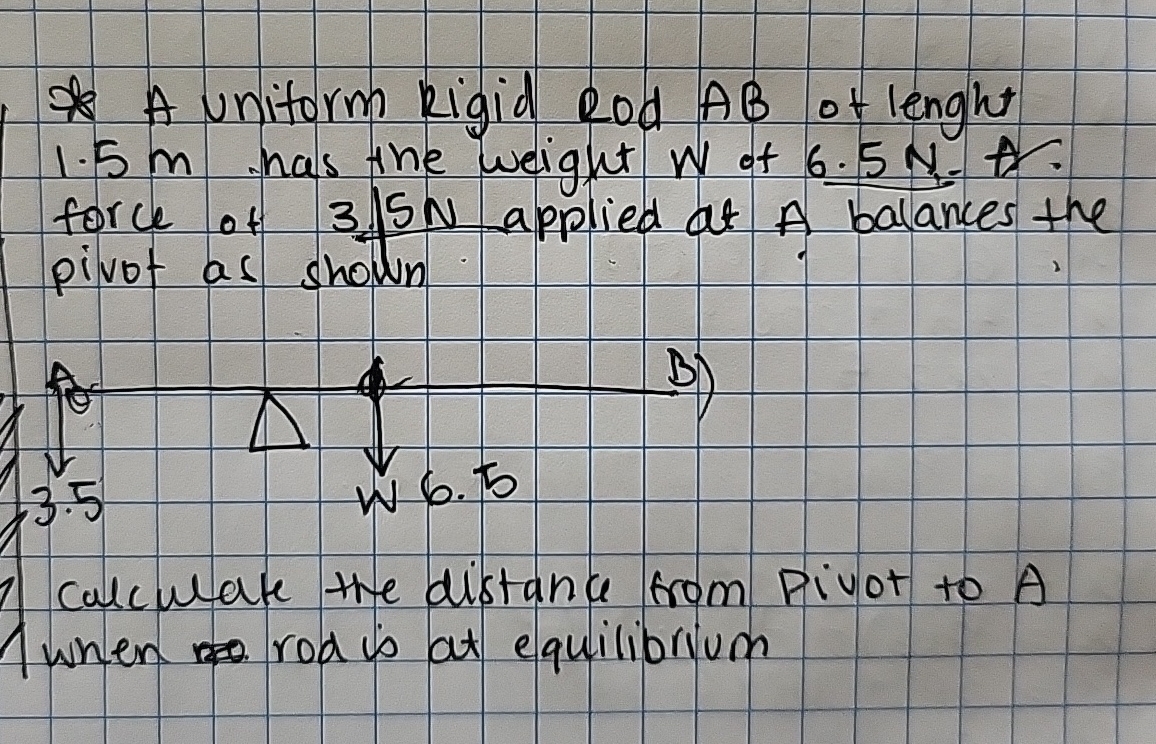 * A uniform Rigid Rod AB of lenght
1.5 m has the weight W of 6.5 N. A
force of 3.5N applied at A balances the
pivot as shown
A B
3.5 W 6.5
calculate the distance from Pivot to A
when rod is at equilibrium